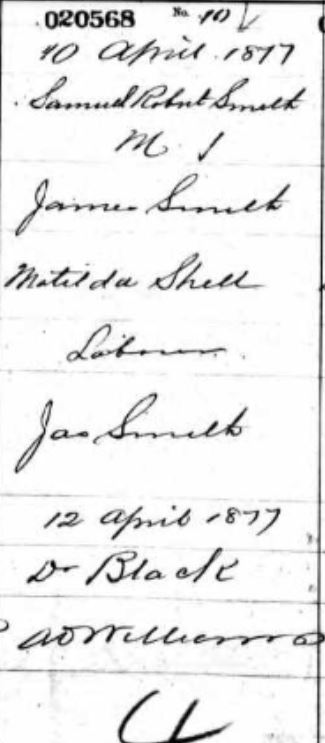 020568 No. 10
10 April 1877
Samuel Robert Smith
M
James Smith
Matilda Shell
Labourer
Jas Smith
12 April 1877
Dr Black